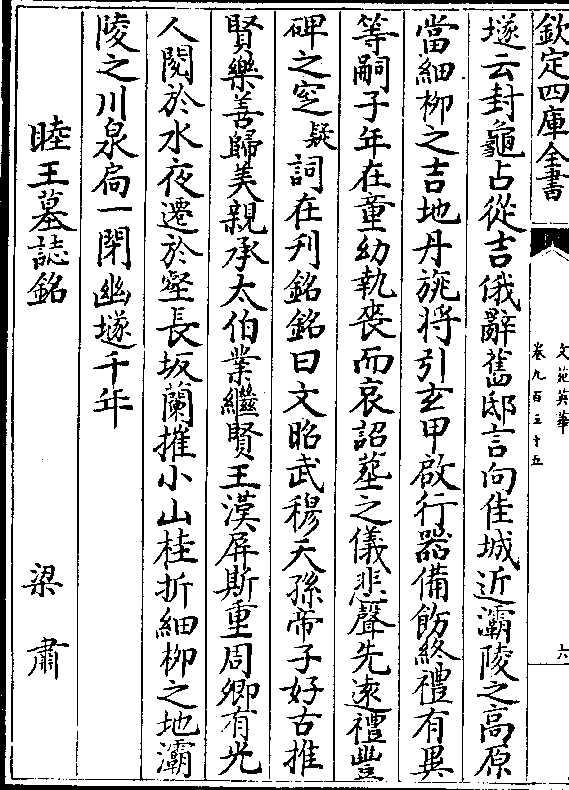 欽定四庫全書
文苑英華
卷九百三十五
六
墜云封龜占從吉俄辭舊邸言向佳城近灞陵之高原
當細柳之吉地丹旐將引玄甲啟行器備飭終禮有異
等嗣子年在童幼執喪而哀詔塟之儀悲聲先遠禮豐
碑之窆疑詞在刋銘銘曰文昭武穆天孫帝子好古推
賢樂善歸美親承太伯業繼賢王漢屏斯重周卿有光
人閱於水夜遷於壑長坂蘭摧小山桂折細柳之地灞
陵之川泉扃一閉幽墜千年
睦王墓誌銘
梁肅